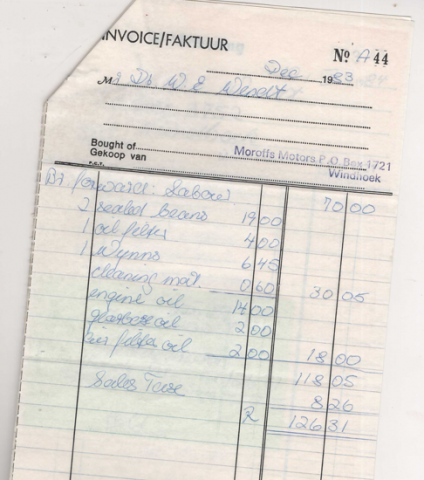 INVOICE/FAKTUUR
Nº A 44
Dec 1983
Mr Dr. W. E. Wendt
Bought of
Gekoop van
Moroffs Motors P.O. Box 1721
Windhoek
Bt forward: Labour 70 00
2 sealed beams 19 00
1 oil filter 4 00
1 Wynns 6 45
cleaning mat. 0 60 30 05
engine oil 14 00
gearbox oil 2 00
air filter oil 2 00 18 00
118 05
Sales Taxe 8 26
R 126 31